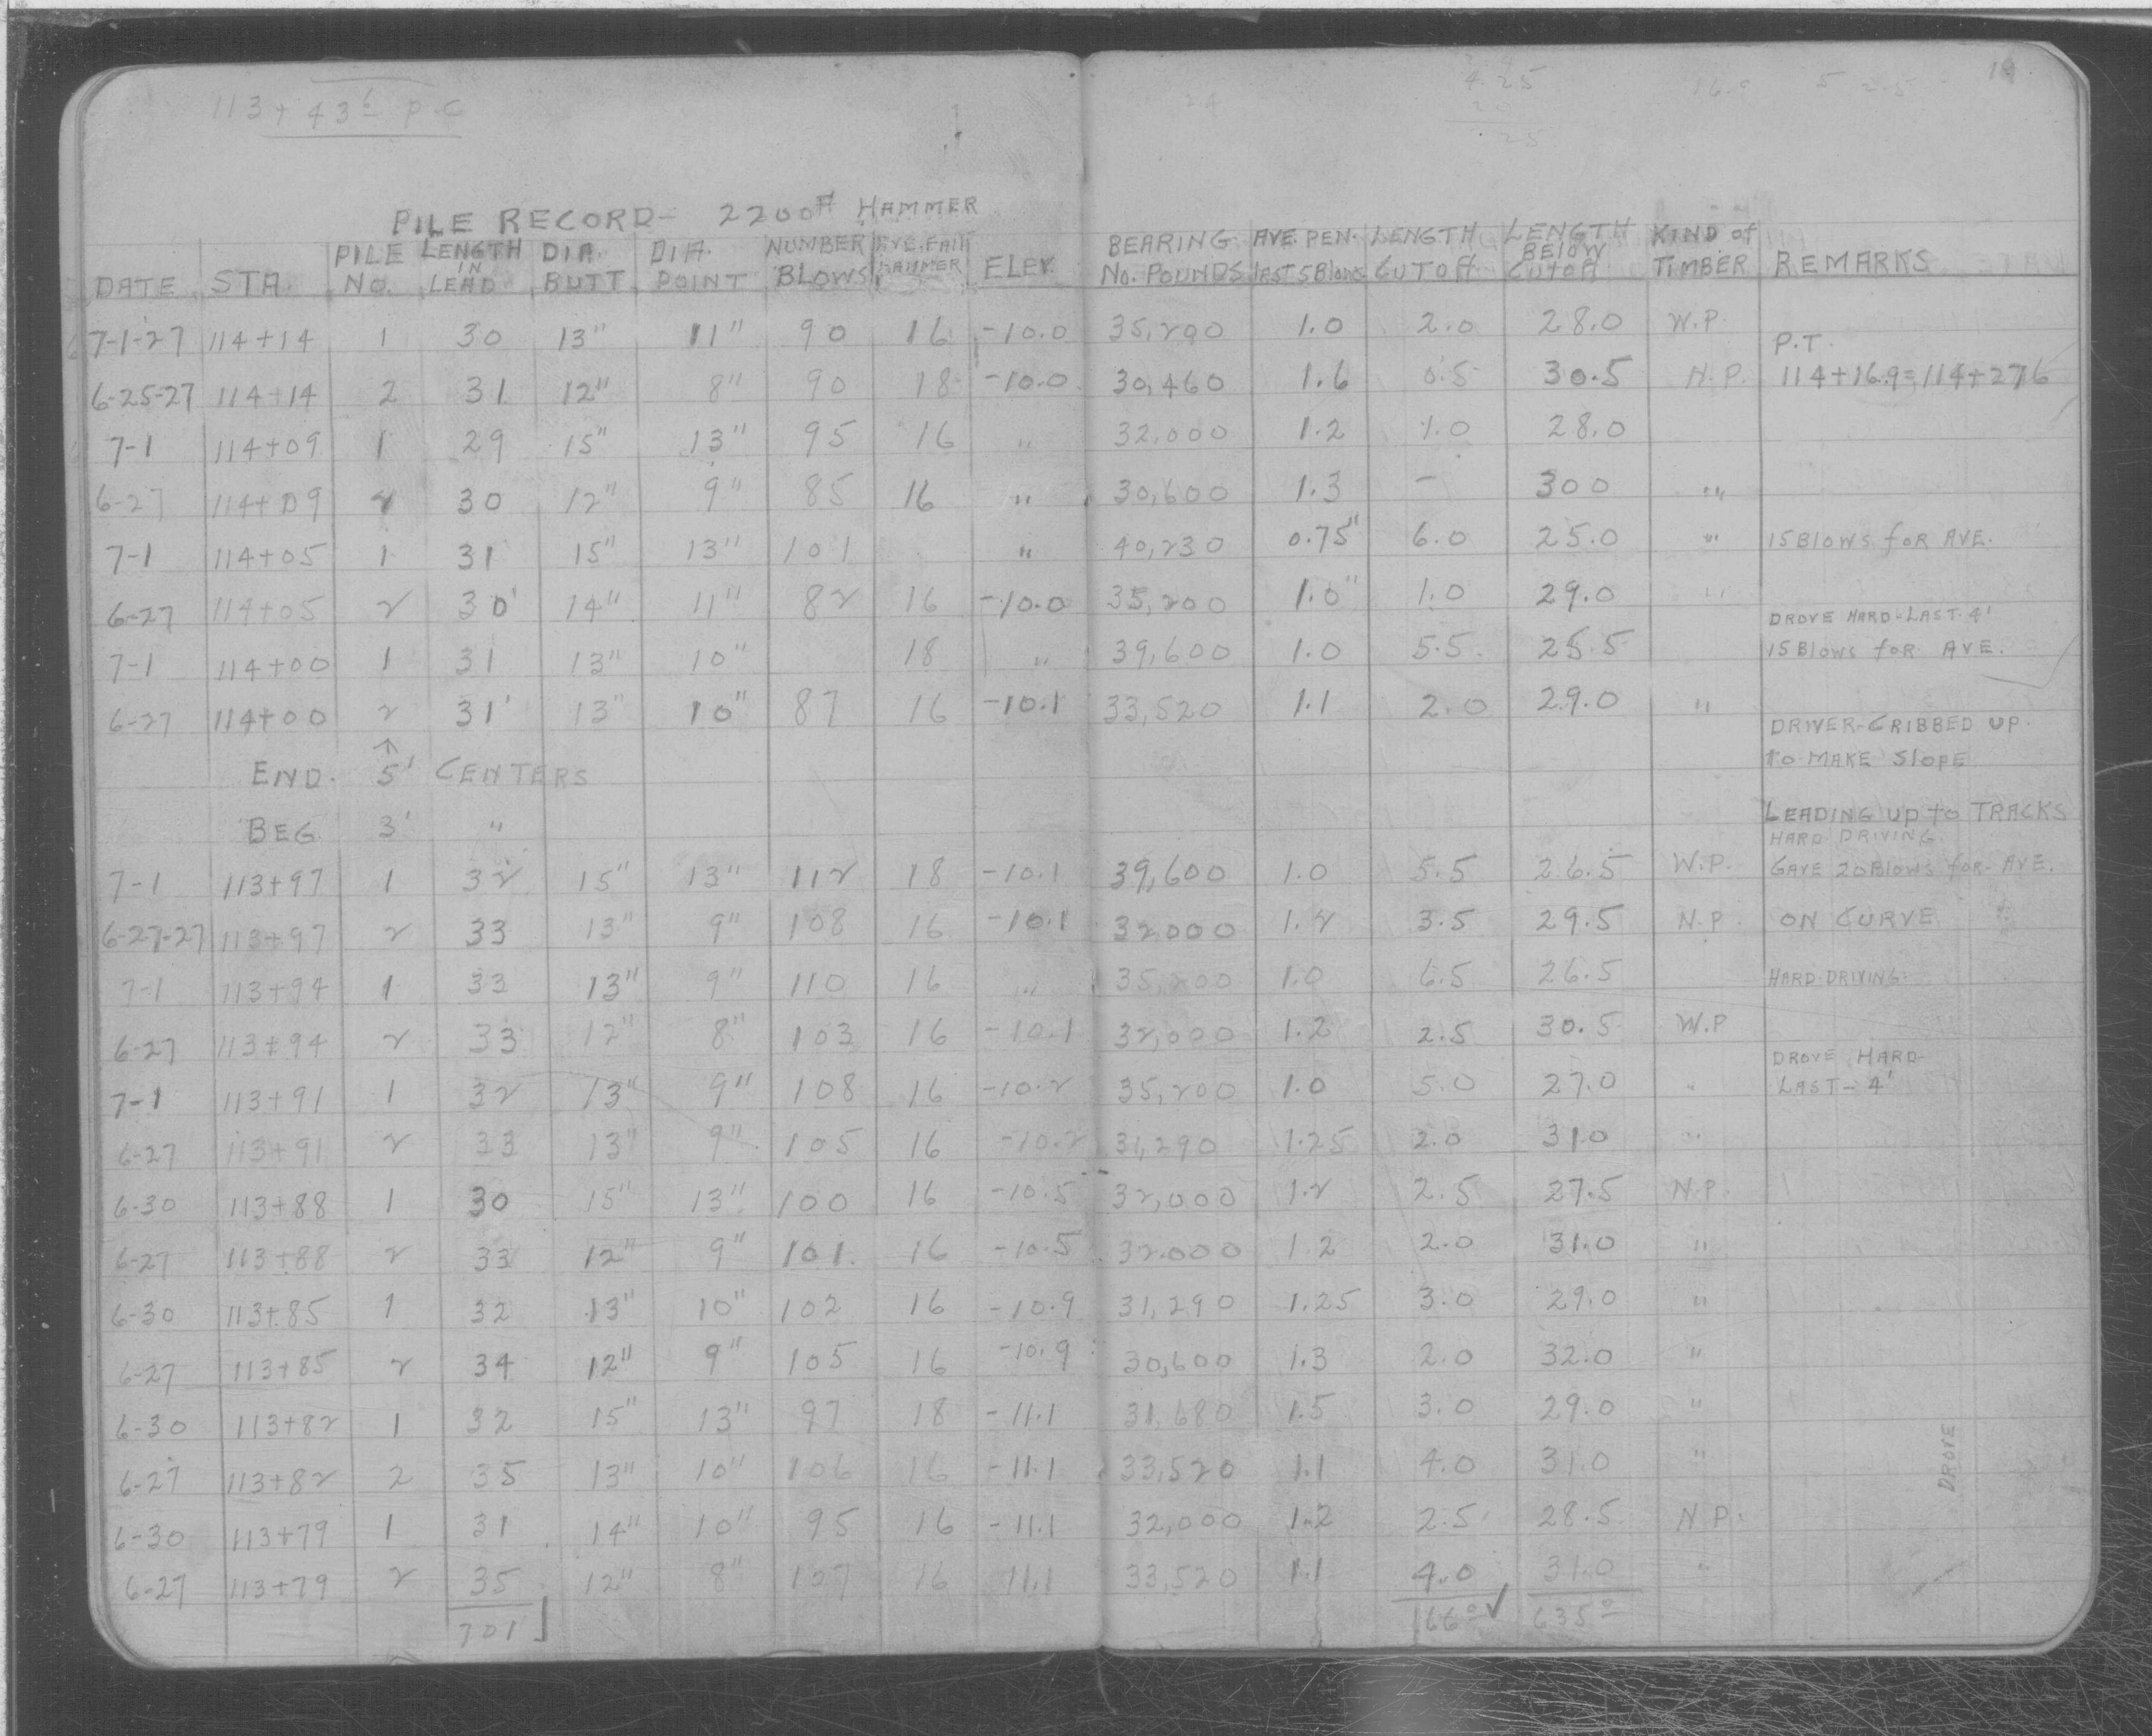 113+43⁶ P.C
PILE RECORD- 2200# HAMMER
DATE STA. PILE No. LENGTH IN LEAD DIA. BUTT DIA. POINT NUMBER BLOWS AVE. FALL HAMMER ELEV. BEARING No. POUNDS AVE. PEN. LAST 5 BLOWS LENGTH CUTOFF LENGTH BELOW CUTOFF KIND of TIMBER REMARKS
7-1-27 114+14 1 30 13" 11" 90 16 -10.0 35,200 1.0 2.0 28.0 W.P.
P.T.
6-25-27 114+14 2 31 12" 8" 90 18 -10.0 30,460 1.6 0.5 30.5 N.P. 114+16.9=114+27.6
7-1 114+09 1 29 15" 13" 95 16 " 32,000 1.2 1.0 28.0
6-27 114+09 2 30 12" 9" 85 16 " 30,600 1.3 - 300 "
7-1 114+05 1 31 15" 13" 101 " 40,230 0.75" 6.0 25.0 " 15 Blows for AVE.
6-27 114+05 2 30' 14" 11" 82 16 -10.0 35,200 1.0" 1.0 29.0 "
DROVE HARD-LAST-4'
7-1 114+00 1 31 13" 10" 18 " 39,600 1.0 5.5 25.5 15 Blows for AVE.
6-27 114+00 2 31' 13" 10" 87 16 -10.1 33,520 1.1 2.0 29.0 "
DRIVER-CRIBBED UP
↑
END. 5' CENTERS to MAKE SLOPE
BEG 3' " LEADING UP to TRACKS
HARD DRIVING
7-1 113+97 1 32 15" 13" 112 18 -10.1 39,600 1.0 5.5 26.5 W.P. GAVE 20 Blows for AVE.
6-27-27 113+97 2 33 13" 9" 108 16 -10.1 32000 1.2 3.5 29.5 N.P. ON CURVE
7-1 113+94 1 33 13" 9" 110 16 " 35,200 1.0 6.5 26.5 HARD-DRIVING
6-27 113+94 2 33 12" 8" 103 16 -10.1 32,000 1.2 2.5 30.5 W.P
DROVE HARD-
7-1 113+91 1 32 13" 9" 108 16 -10.2 35,200 1.0 5.0 27.0 " LAST-4'
6-27 113+91 2 33 13" 9" 105 16 -10.2 31,290 1.25 2.0 31.0 "
6-30 113+88 1 30 15" 13" 100 16 -10.5 32,000 1.2 2.5 27.5 N.P.
6-27 113+88 2 33 12" 9" 101 16 -10.5 32.000 1.2 2.0 31.0 "
6-30 113+85 1 32 13" 10" 102 16 -10.9 31,290 1.25 3.0 29.0 "
6-27 113+85 2 34 12" 9" 105 16 -10.9 30,600 1.3 2.0 32.0 "
6-30 113+82 1 32 15" 13" 97 18 -11.1 31,680 1.5 3.0 29.0 "
6-27 113+82 2 35 13" 10" 106 16 -11.1 33,520 1.1 4.0 31.0 "
DROVE
6-30 113+79 1 31 14" 10" 95 16 -11.1 32,000 1.2 2.5 28.5 N.P.
6-27 113+79 2 35 12" 8" 107 16 11.1 33,520 1.1 4.0 31.0 "
701 166⁰✓ 635⁰